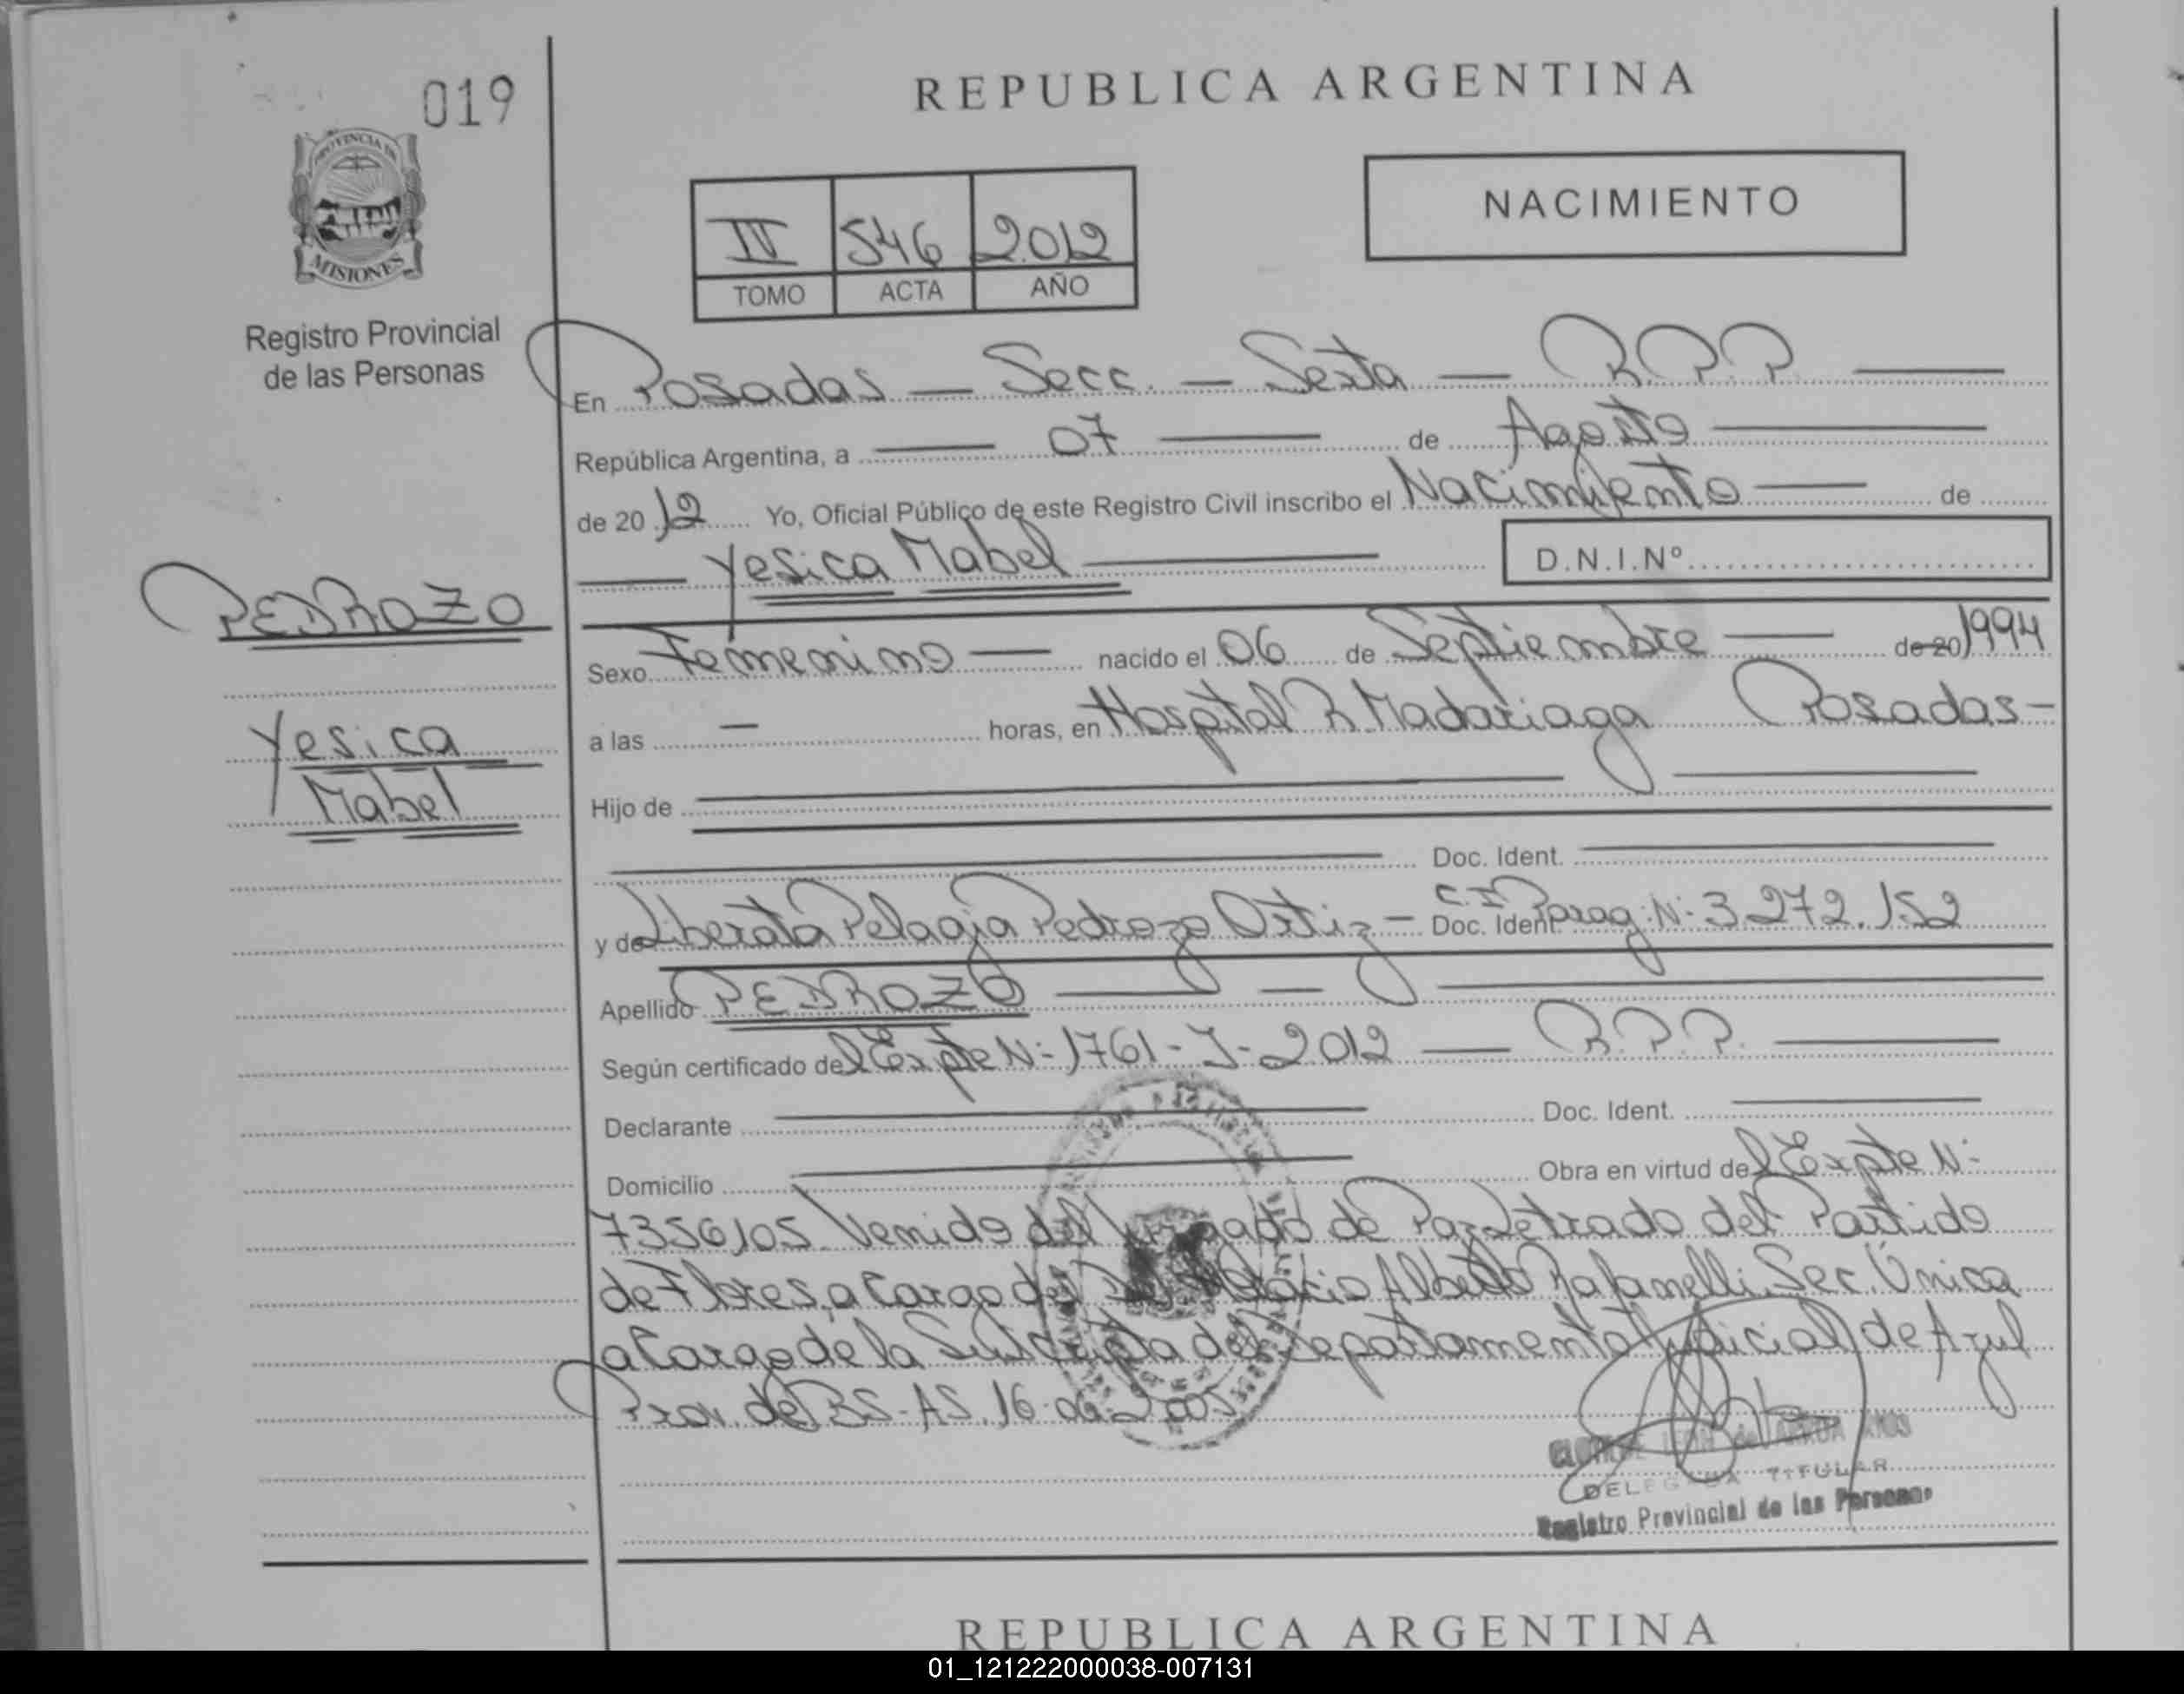 019
REPUBLICA ARGENTINA
PROVINCIA DE
MISIONES
NACIMIENTO
IV 546 2012
TOMO ACTA AÑO
Registro Provincial
de las Personas
En Posadas — Secc. — Sexta — R.P.P.
República Argentina, a — 07 — de Agosto
de 2012 Yo, Oficial Público de este Registro Civil inscribo el Nacimiento — de
Yesica Mabel
D.N.I.Nº
PEDROZO
Yesica
Mabel
Sexo Femenino — nacido el 06 de Septiembre — de 20 1994
a las — horas, en Hospital R. Madariaga Posadas -
Hijo de
Doc. Ident.
y de Liberata Pelagia Pedrozo Ortiz - Doc. Ident. C.I. Parag. N: 3.272.152
Apellido PEDROZO
Según certificado del Expte N: 1761-J-2012 — R.P.P.
Declarante Doc. Ident.
Domicilio Obra en virtud del Expte N:
7356/05 Venido del Juzgado de Paz Letrado del Partido
de Flores, a Cargo del Alberto Sec. Única
a Cargo de la del Departamento Judicial de Azul
Prov. de BS-AS. 16-06-2005
DELEGADA TITULAR
Registro Provincial de las Personas
REPUBLICA ARGENTINA
01_121222000038-007131